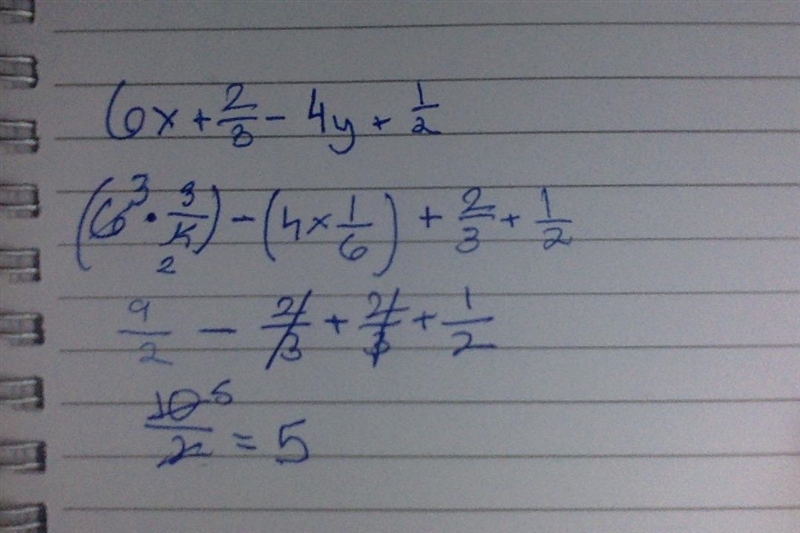 6x + 2/3 - 4y + 1/2
(6 3 · 3/4 2) - (4 × 1/6) + 2/3 + 1/2
9/2 - 2/3 + 2/3 + 1/2
10 5/2 = 5